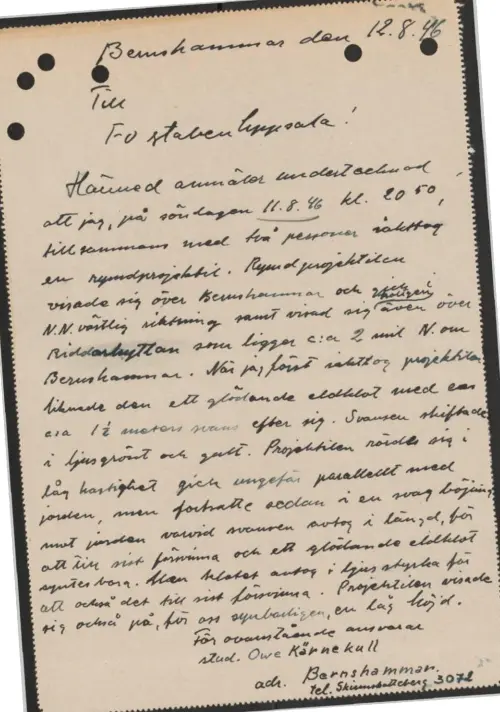 Bernshammar den 12.8.46
Till
F-o staben Uppsala!
Härmed anmäler undertecknad
att jag, på söndagen 11.8.46 kl. 20 50,
tillsammans med två personer iakttog
en rymdprojektil. Rymdprojektilen
visade sig över Bernshammar och gick i
N.N.västlig riktning samt visad sig även över
Riddarhyttan som ligger c:a 2 mil N. om
Bernshammar. När jag först iakttog projektilen
liknade den ett glödande eldklot med en
c:a 1½ meters svans efter sig. Svansen skiftade
i ljusgrönt och gult. Projektilen rörde sig i
låg hastighet gick ungefär parallellt med
jorden, men fortsatte sedan i en svag böjning
mot jorden varvid svansen avtog i längd, för
att till sist försvinna och ett glödande eldklot
syntes bara. Men klotet avtog i ljusstyrka för
att också det till sist försvinna. Projektilen visade
sig också på, för oss synbarligen, en låg höjd.
För ovanstående ansvarar
stud. Owe Kärnekull
adr. Bernshammar.
Tel. Skinnskatteberg 3072